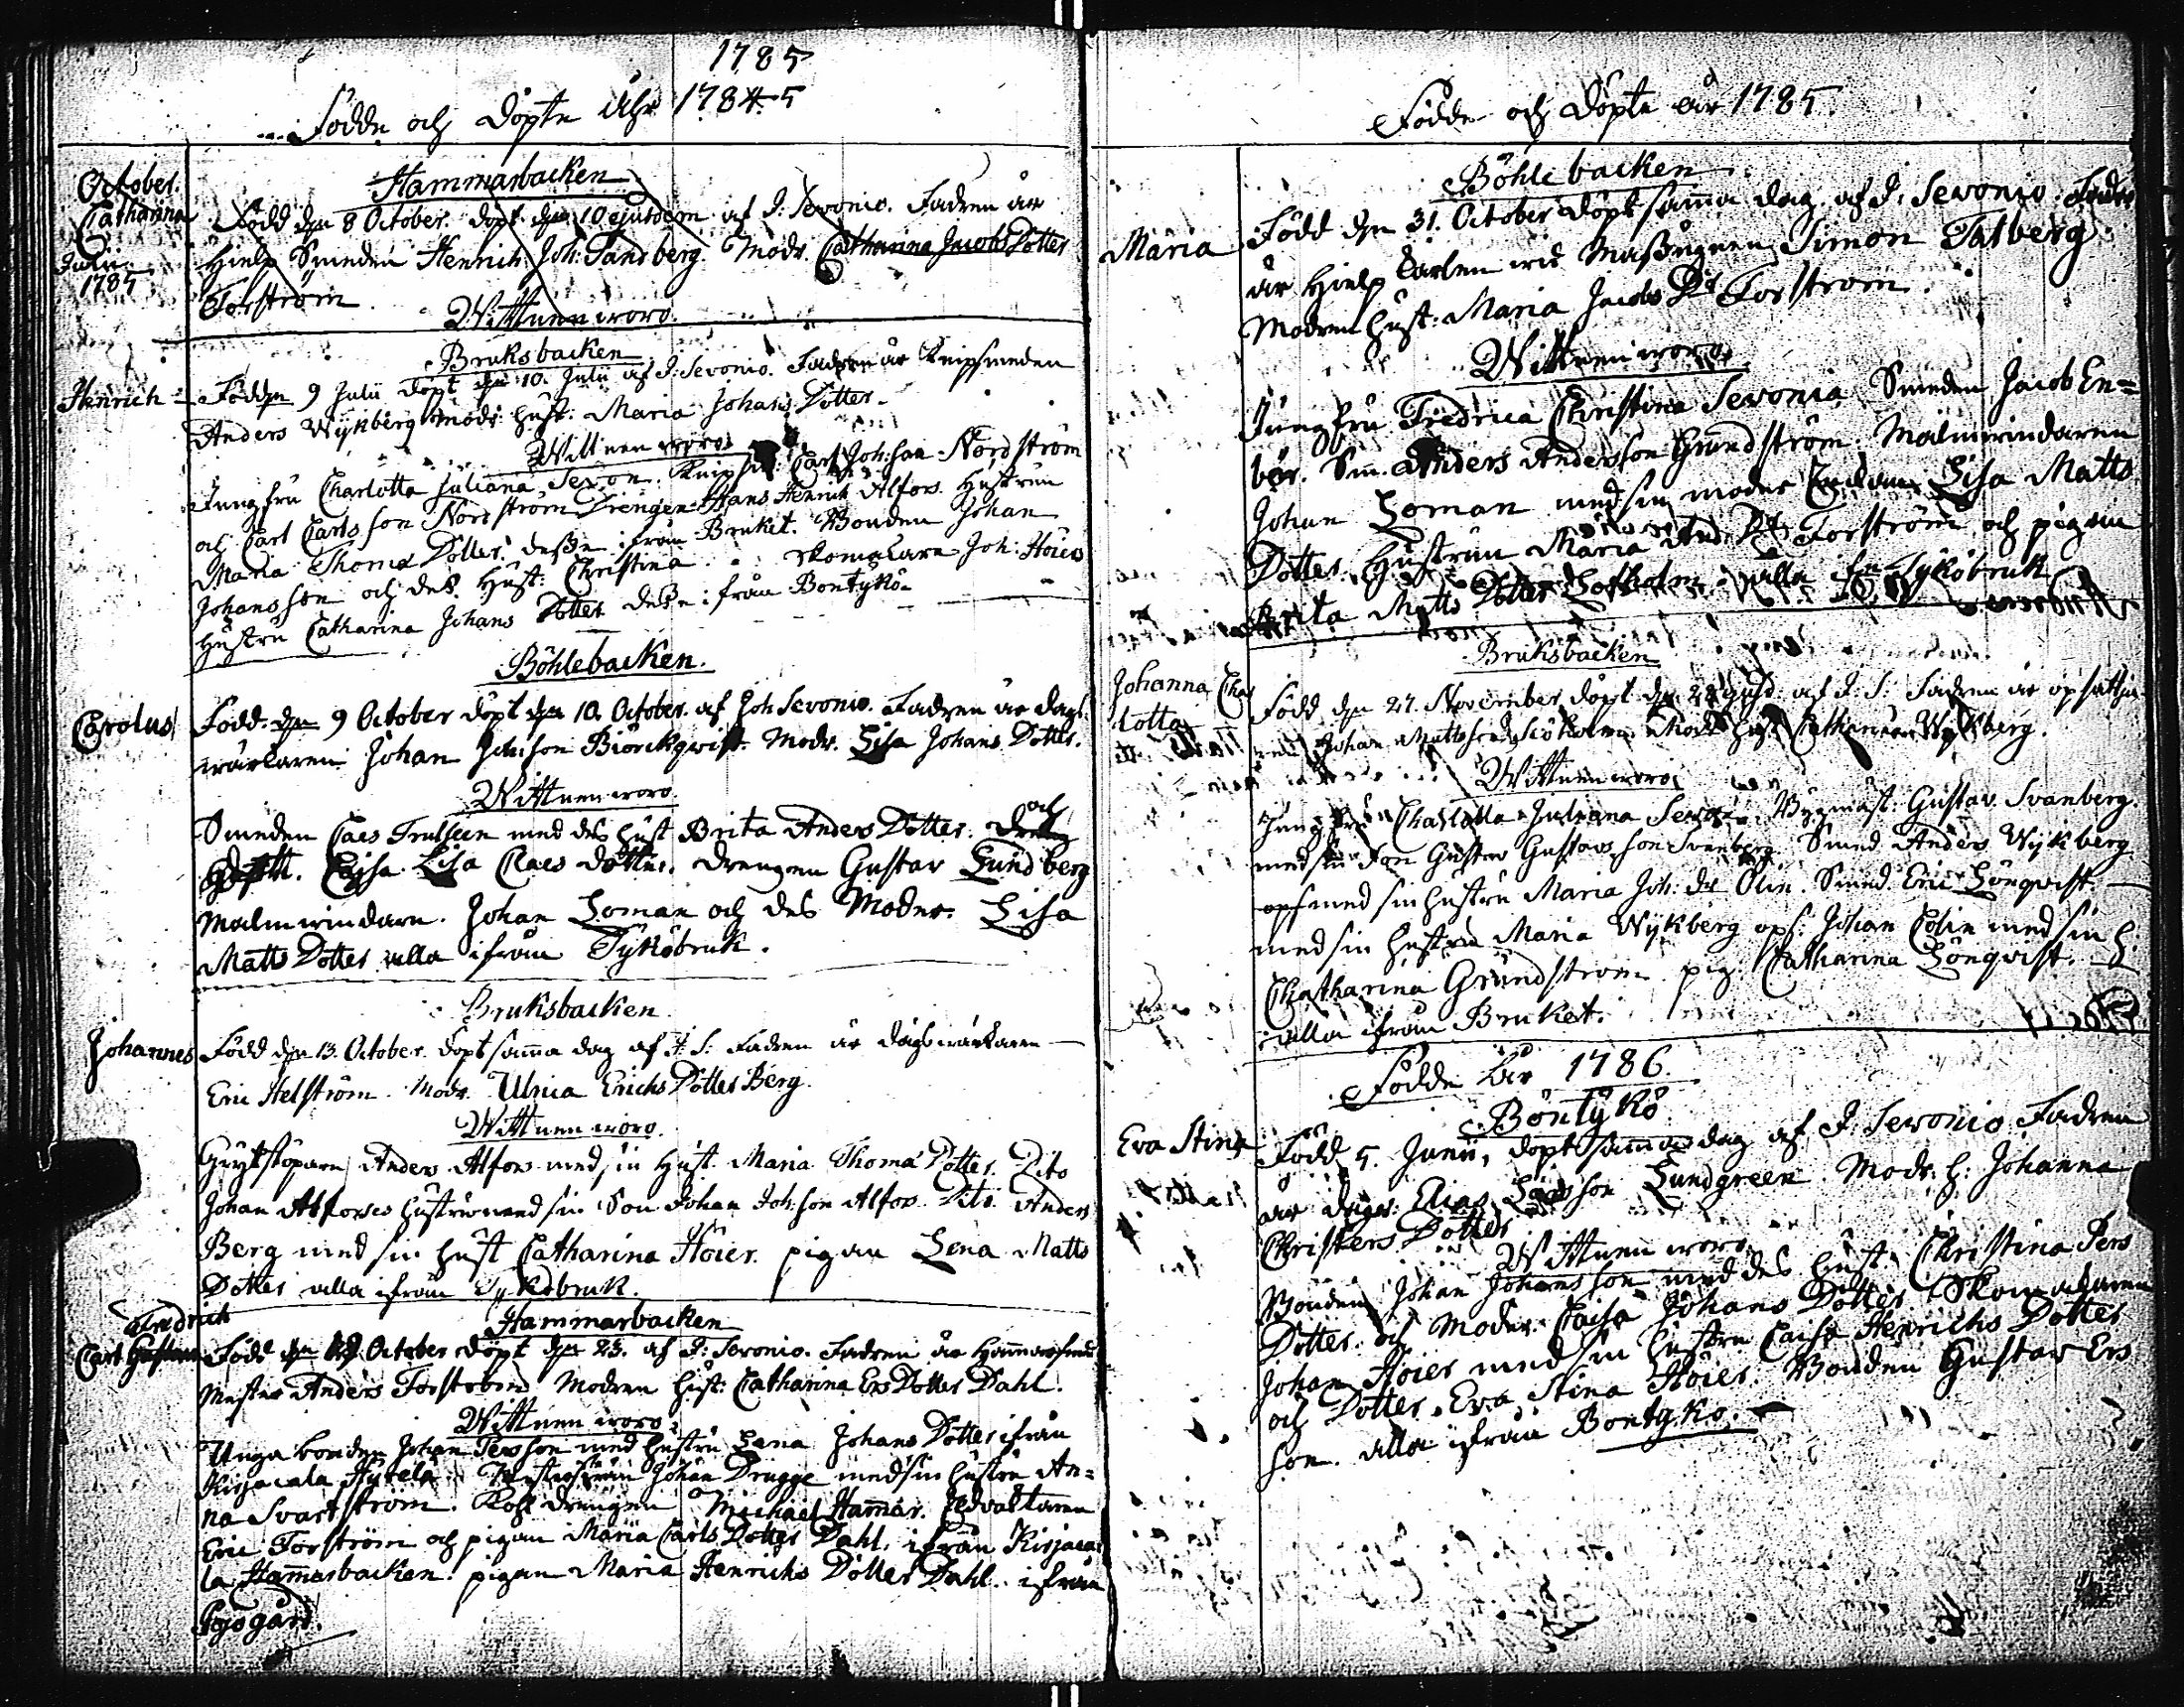 1785
Födde och döpte åhr 1784. 5
October.
Hammarbacken
Catharina
Född den 8 October. döpt den 10 ejusdem af J: Sevonio. Fadren är
Hielp Smeden Henrich Joh: Sandberg. Modr. Catharina Jacobs Dotter
Julii
1785
Forström
Wittnen woro.
Bruksbacken
Hinrich
Född den 9 Julii döpt den 10. Julii af J: Sevonio. Fadren är Knipsmeden
Anders Wykberg modr hust. Maria Johans Dotter
Wittnen woro
Jungfru Charlotta Juliana Sevon. Knipsm: Carl Joh:son Nordström
och Carl Carlsson Nordström Drengen Hans Henrich Alfors. Hustrun
Maria Thomæ Dotter. desse ifrån Bruket. Bonden Johan
Johansson och des Hust: Christina skomakare Joh: Höier
Hustru Catharina Johans Dotter desse ifrån Bontykö
Böhlebacken.
Carolus
Född den 9 October döpt den 10. October. af Joh Sevonio. Fadren är dags
wärkaren Johan Joh:son Biörckqwist. Modr. Lisa Johans Dotter.
Wittnen woro.
Smeden Claes Trulseen med des hust Brita Anders Dotter. och
Caisa Lisa Claes dotter. drengen Gustav Lundberg
Malmwindare. Johan Loman och des Moder. Lisa
Matts Dotter alla ifrån Tyköbruk.
Bruksbacken
Johannes
Född den 13. October. döpt samma dag af J: S: Fadren är dagswärkaren
Eric Helström. Modr. Ulrica Erichs Dotter Berg.
Wittnen woro.
Giytstöparen Anders Alfors med sin Hust. Maria Thomæ Dotter. Dito
Johan Alforses hustru med sin Son Johan Joh:son Alfors. Dito Anders
Berg med sin hust Catharina Höier. pigan Lena Matts
Dotter alla ifrån Tyköbruk.
Fredrich
Hammarbacken
Carl Gustav
Född den 19 October döpt den 23. af J: Sevonio. Fadren är Hammarsmeds
Mester Anders Forström Modren hust: Catharina Ers Dotter Dahl.
Wittnen woro
Unga bonden Johan Persson med hustru Lena Johans Dotter ifrån
Kirjacala Hyrelä Johan Drugge med sin hustru An=
na Svartström. Kohl drengen Michael Hammar.
Eric Forström och pigan Maria Carls Dotter Dahl. ifrån Kirjaca
la Hammarbacken. pigan Maria Henrichs Dotter Dahl ifrån
Födde och döpte år 1785.
Böhlebacken
Maria
Född den 31. October döpt samma dag. af J: Sevonio. Fadren
är Hielp karlen wid Masugnen Simon Talberg.
Modren hust: Maria Jacobs Dr Forström.
Wittnen woro
Jungfru Fredrica Christina Sevonia Smeden Jacob En=
bör. Sm. Anders Andersson Grundström. Malmwindaren
Johan Loman med sin moder Lisa Matts
Dotter. Hustrun Maria And. Dr Forström och pigan
Brita Matts Dotter Lofholm alla ifr Tyköbruk
Bruksbacken
Johanna Char
lotta
Född den 27. November döpt den 28 af J: S: Fadren är
Johan Mattsson Sjöholm Modr hust Catharina Wykberg.
Wittnen woro
Jungfru Charlotta Juliana Sevon. Bygmäst. Gustav Svanberg.
med sin Son Gustav Gustavsson Svanberg. Smed Anders Wykberg
med sin hustru Maria Joh: dr Olin. Smed Eric Lönqvist
med sin hustru Maria Wykberg ops: Johan Colin med sin h.
Chatharina Grundström. pig. Catharina Lönqvist.
alla ifrån Bruket.
Födde år 1786.
Böntykö
Eva Stina
Född 5. Junii, döpt samma dag af J. Sevonio Fadren
är Elias Larsson Lundgreen Modr. h: Johanna
Christers Dotter
Wittnen woro
Bonden Johan Johansson med des hust: Christina Pers
Dotter. och Moder. Caisa Johans Dotter. Skomakaren
Johan Höier med sin hustru Caisa Henrichs Dotter
och Dotter Eva Stina Höier. Bonden Gustav Ers
son. alla ifrån Bontykö.